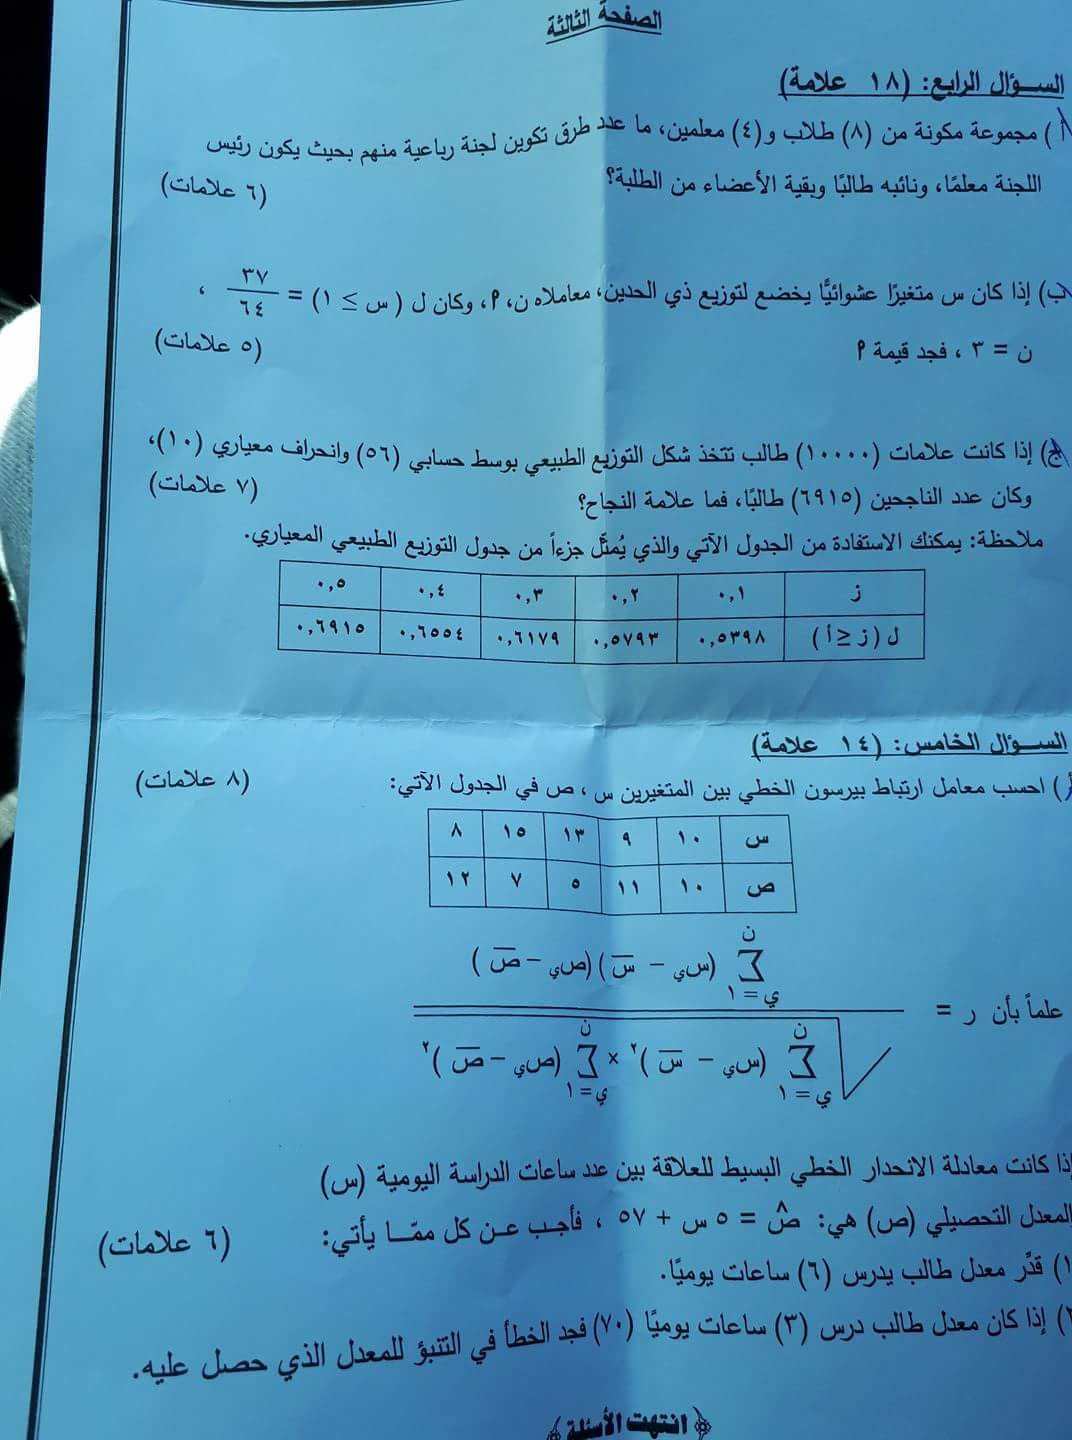 الصفحة الثالثة
السؤال الرابع: (١٨ علامة)
أ) مجموعة مكونة من (٨) طلاب و(٤) معلمين، ما عدد طرق تكوين لجنة رباعية منهم بحيث يكون رئيس
اللجنة معلمًا، ونائبه طالبًا وبقية الأعضاء من الطلبة؟ (٦ علامات)
ب) إذا كان س متغيرًا عشوائيًا يخضع لتوزيع ذي الحدين، معاملاه ن، P، وكان ل (س ≥ ١) = ٣٧/٦٤ ،
ن = ٣ ، فجد قيمة P (٥ علامات)
ج) إذا كانت علامات (١٠٠٠٠) طالب تتخذ شكل التوزيع الطبيعي بوسط حسابي (٥٦) وانحراف معياري (١٠)،
وكان عدد الناجحين (٦٩١٥) طالبًا، فما علامة النجاح؟ (٧ علامات)
ملاحظة: يمكنك الاستفادة من الجدول الآتي والذي يُمثّل جزءاً من جدول التوزيع الطبيعي المعياري.
ز ٠,١ ٠,٢ ٠,٣ ٠,٤ ٠,٥
ل (ز ≤ أ) ٠,٥٣٩٨ ٠,٥٧٩٣ ٠,٦١٧٩ ٠,٦٥٥٤ ٠,٦٩١٥
السؤال الخامس: (١٤ علامة)
أ) احسب معامل ارتباط بيرسون الخطي بين المتغيرين س ، ص في الجدول الآتي: (٨ علامات)
س ١٠ ٩ ١٣ ١٥ ٨
ص ١٠ ١١ ٥ ٧ ١٢
ن
∑ (سي − س̄)(صي − ص̄)
ي = ١
علماً بأن ر =
ن ن
√ ∑ (سي − س̄)٢ × ∑ (صي − ص̄)٢
ي = ١ ي = ١
إذا كانت معادلة الانحدار الخطي البسيط للعلاقة بين عدد ساعات الدراسة اليومية (س)
المعدل التحصيلي (ص) هي: ص^ = ٥ س + ٥٧ ، فأجب عن كل ممّا يأتي: (٦ علامات)
١) قدِّر معدل طالب يدرس (٦) ساعات يوميًا.
٢) إذا كان معدل طالب درس (٣) ساعات يوميًا (٧٠) فجد الخطأ في التنبؤ للمعدل الذي حصل عليه.
﴿ انتهت الأسئلة ﴾